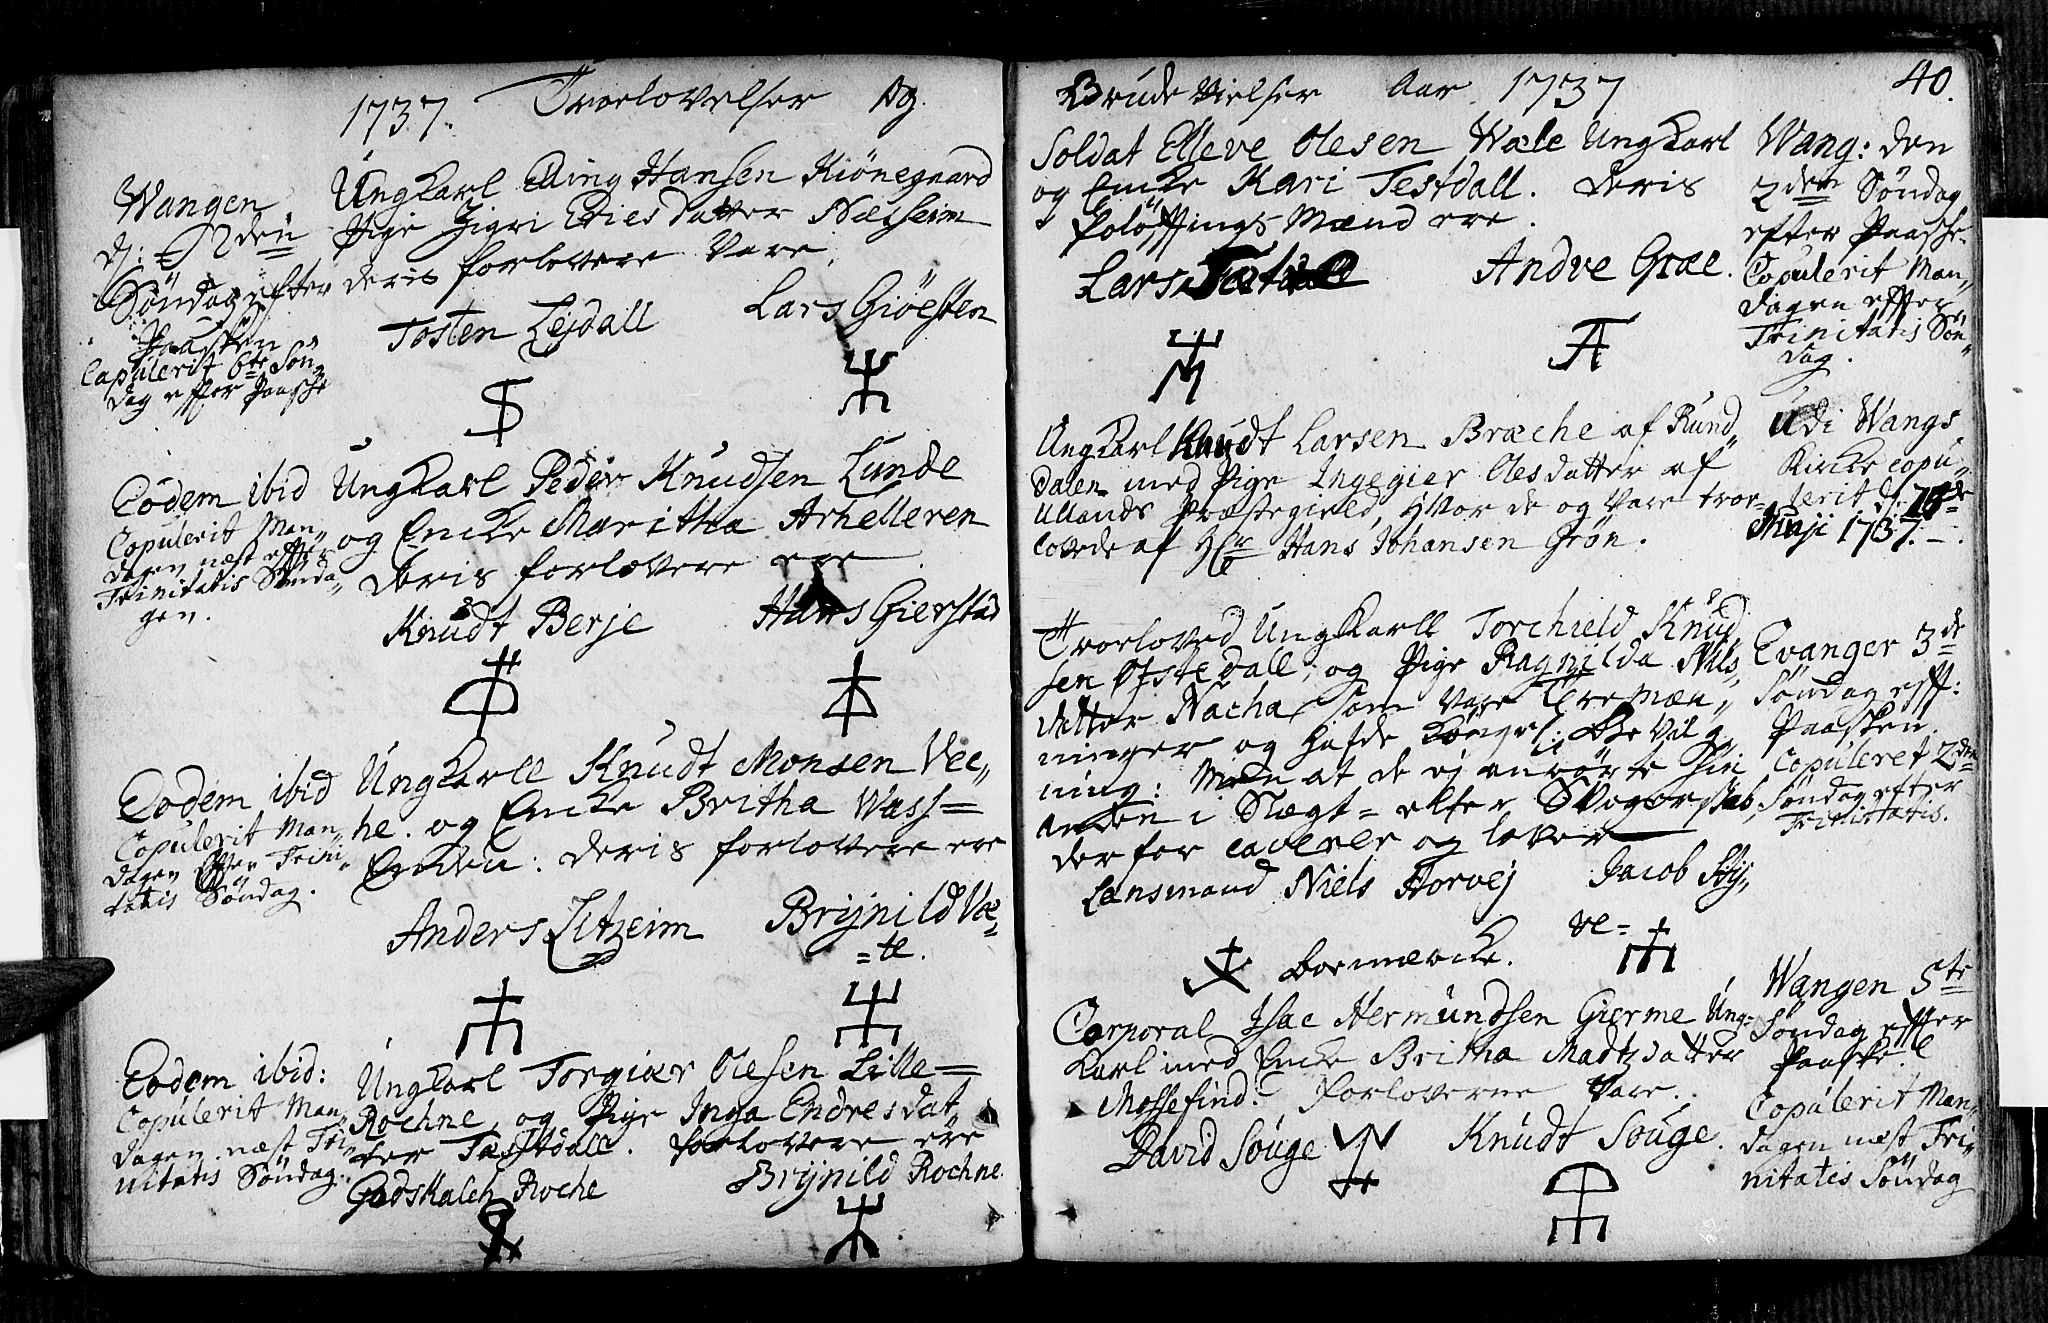 1737. Troelovelser og
Wangen
d: 2den
Søndag efter
Paasken
Copulerit 6te Søn„
dag efter Paasche
Ungkarl Elling Hansen Kiönegaard
Pige Zigri Ediesdatter Næsheim
deris forlovere vare,
Tosten Lejdall Lars Giöesten
Eodem ibid
Copulerit Man„
dagen næst effter
Trinitatis Sönda„
gen.
Ungkarl Peder Knudsen Lunde
og Encke Maritha Arhelleren
deris forlovere ere
Knudt Berje Hans Gierstad
Eodem ibid
Copulerit Man„
dagen effter Trini„
tatis Söndag.
Ungkarll Knudt Monsen Vee„
he. og Encke Britha Wass=
Enden: deris forlovere ere
Anders Zitzeim Brijnild Væ„
=te.
Eodem ibid:
Copulerit Man„
dagen næst Tri„
nitatis Söndag.
Ungkarl Torgiær Olesen Lille=
Rochne, og Pige Inga Endresdat„
ter Tæstdall. forlovere ere
Godskalch Roche Brijnild Rochne
Brude Vielser Aar 1737
40.
Soldat Elleve Olesen Wæle Ungkarl
og Encke Kari Testdall. deris
forlöffnings Mænd ere.
Lars Andve Græe.
Wang: den
2den Søndag
efter Paasche
Copulerit Man„
dagen effter
Trinitatis Søn„
dag.
Ungkarl Knudt Larsen Bræche af Rund„
dalen med Pige Ingegier Olesdatter af
Ullands Præstegield, hvor de og vare troe„
lovede af Hr Hans Johansen Grön.
Udi Wangs
Kircke copu„
lerit d:
1737.
Troeloved Ungkarll Torchield Knud„
sen Ofstedall, og Pige Ragnilda Nils„
datter Nacha, som vare Tremæn„
ninger og hafde Kongel: Bevilg„
ning: Men at de ej anrörte hin
anden i Slægt= eller Svogerskab,
derfor caverer og lover
Lænsmand Niels Horvej Jacob Stÿ„
ve=
Boemercke.
Evanger 3de
Søndag efft:
Paasken
Copuleret 2den
Søndag efter
Trinitatis.
Corporal Isac Hermundsen Gierme Ung„
Karl med Encke Britha Madtzdatter
Mossefind: Forloverne vare.
David Souge Knudt Souge.
Wangen 5te
Søndag effter
Paaske.
Copulerit Man„
dagen næst Tri„
nitatis Söndag